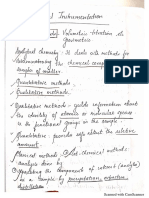 Instrumentation
Volumetric titration &
Gravimetric
Analytical chemistry - It deals with methods for
determining the chemical composition of
samples of matter.
Quantitative methods
Qualitative methods.
Qualitative methods - yields information about
the identity of atomic or molecular species
or the functional groups in the sample.
Quantitative methods - provide info about the relative
amount.
Classical methods - Wet-chemical methods -
analysis done by
separating the components of interest (analytes)
in a sample by precipitation, extraction
distillation
Scanned with CamScanner